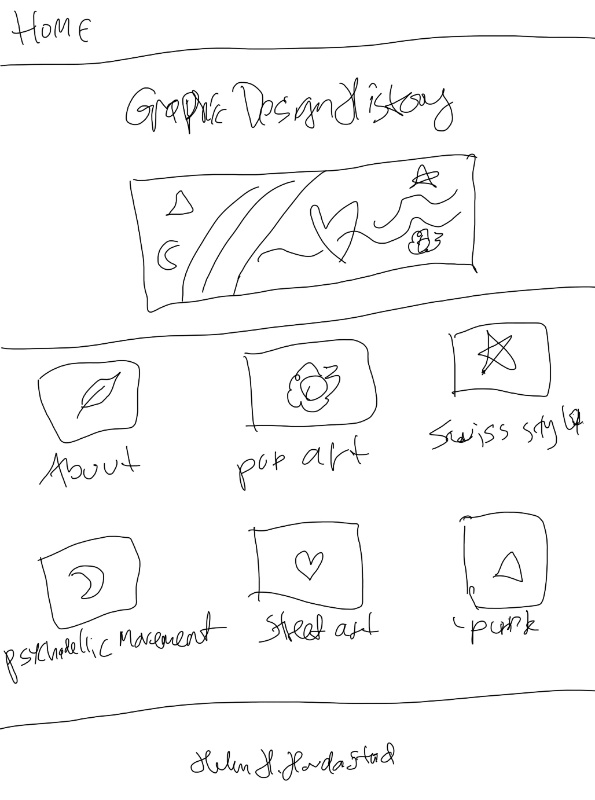 HOME
Graphic Design History
About
pop art
Swiss style
psychadellic Movement
Street art
punk
Helen H.